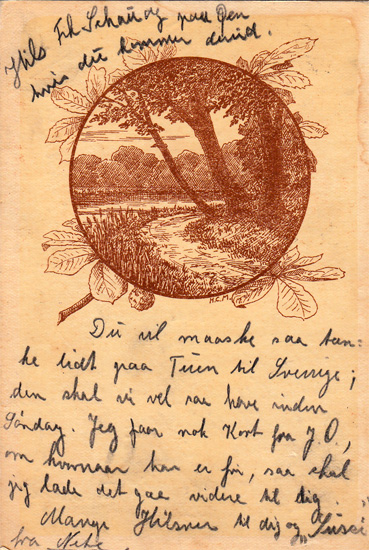 Hils Frk Schou og paa Øen
hvis du kommer derud.
H.C.M.
Du vil maaske saa tæn=
ke lidt paa Turen til Sverrige;
den skal vi vel saa have inden
Søndag. Jeg faar nok Kort fra J.O.,
om hvornaar han er fri, saa skal
jeg lade det gaa videre til dig.
Mange Hilsner til dig og
fra